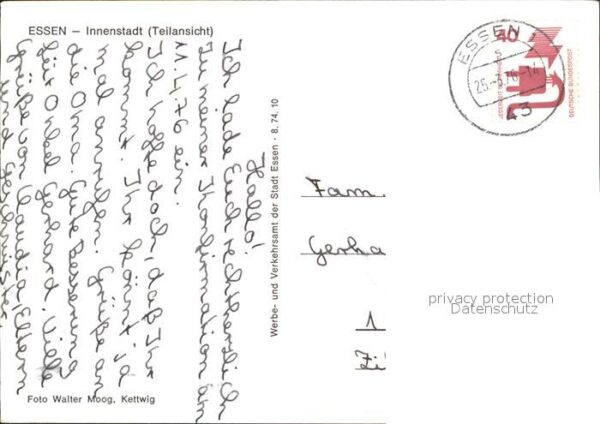 ESSEN – Innenstadt (Teilansicht)
Hallo!
Ich lade Euch recht herzlich
zu meiner Konfirmation am
11.4.76 ein.
Ich hoffe doch, daß Ihr
kommt. Ihr könnt ja
mal anrufen. Grüße an
die Oma. Gute Besserung
für Onkel Gerhard. Viele
Grüße von Claudia, Eltern
und Geschwister
Foto Walter Moog, Kettwig
Werbe- und Verkehrsamt der Stadt Essen - 8. 74. 10
ESSEN 1
s
25.-3.76-14
43
40
JEDERZEIT SICHERHEIT
DEUTSCHE BUNDESPOST
Fam.
Gerha
1
Zi
privacy protection
Datenschutz